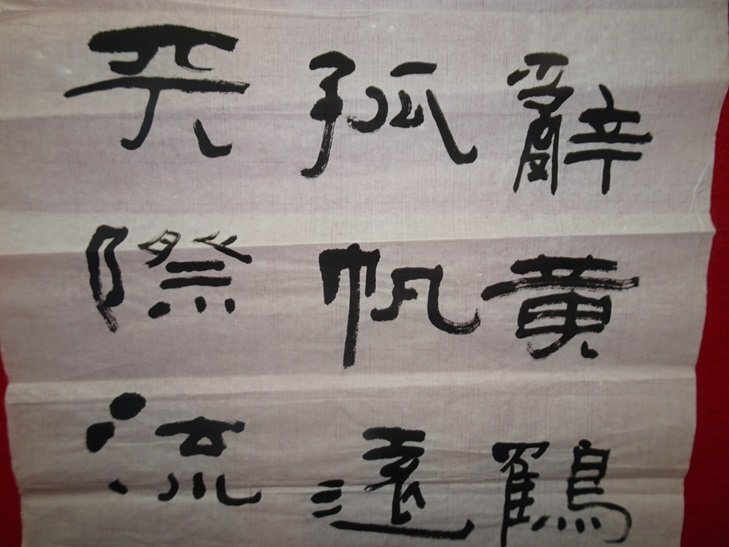 辭黄鶴
孤帆遠
天際流